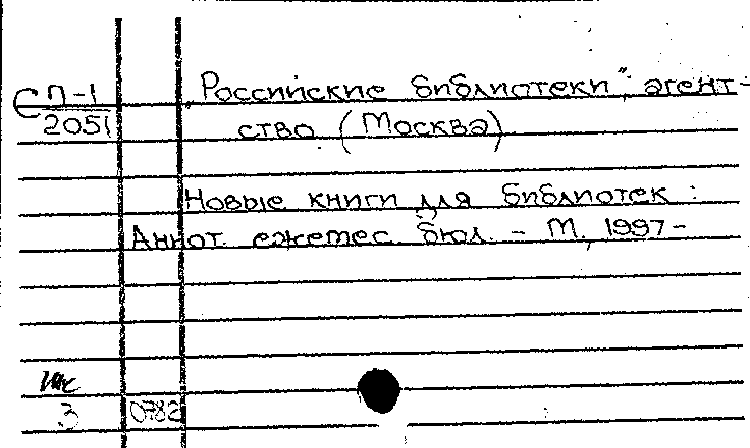 СП-1
2051
„Российские библиотеки", агент-
ство (Москва)
Новые книги для библиотек :
Аннот. ежемес. бюл. - М., 1997-
3 0782